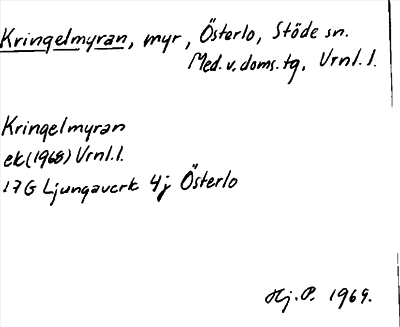 Kringelmyran, myr, Österlo, Stöde sn.
Med. v. doms. tg. Vrnl. l.
Kringelmyran
ek (1968) Vrnl. l.
17G Ljungaverk 4j Österlo
Hj. P. 1969.